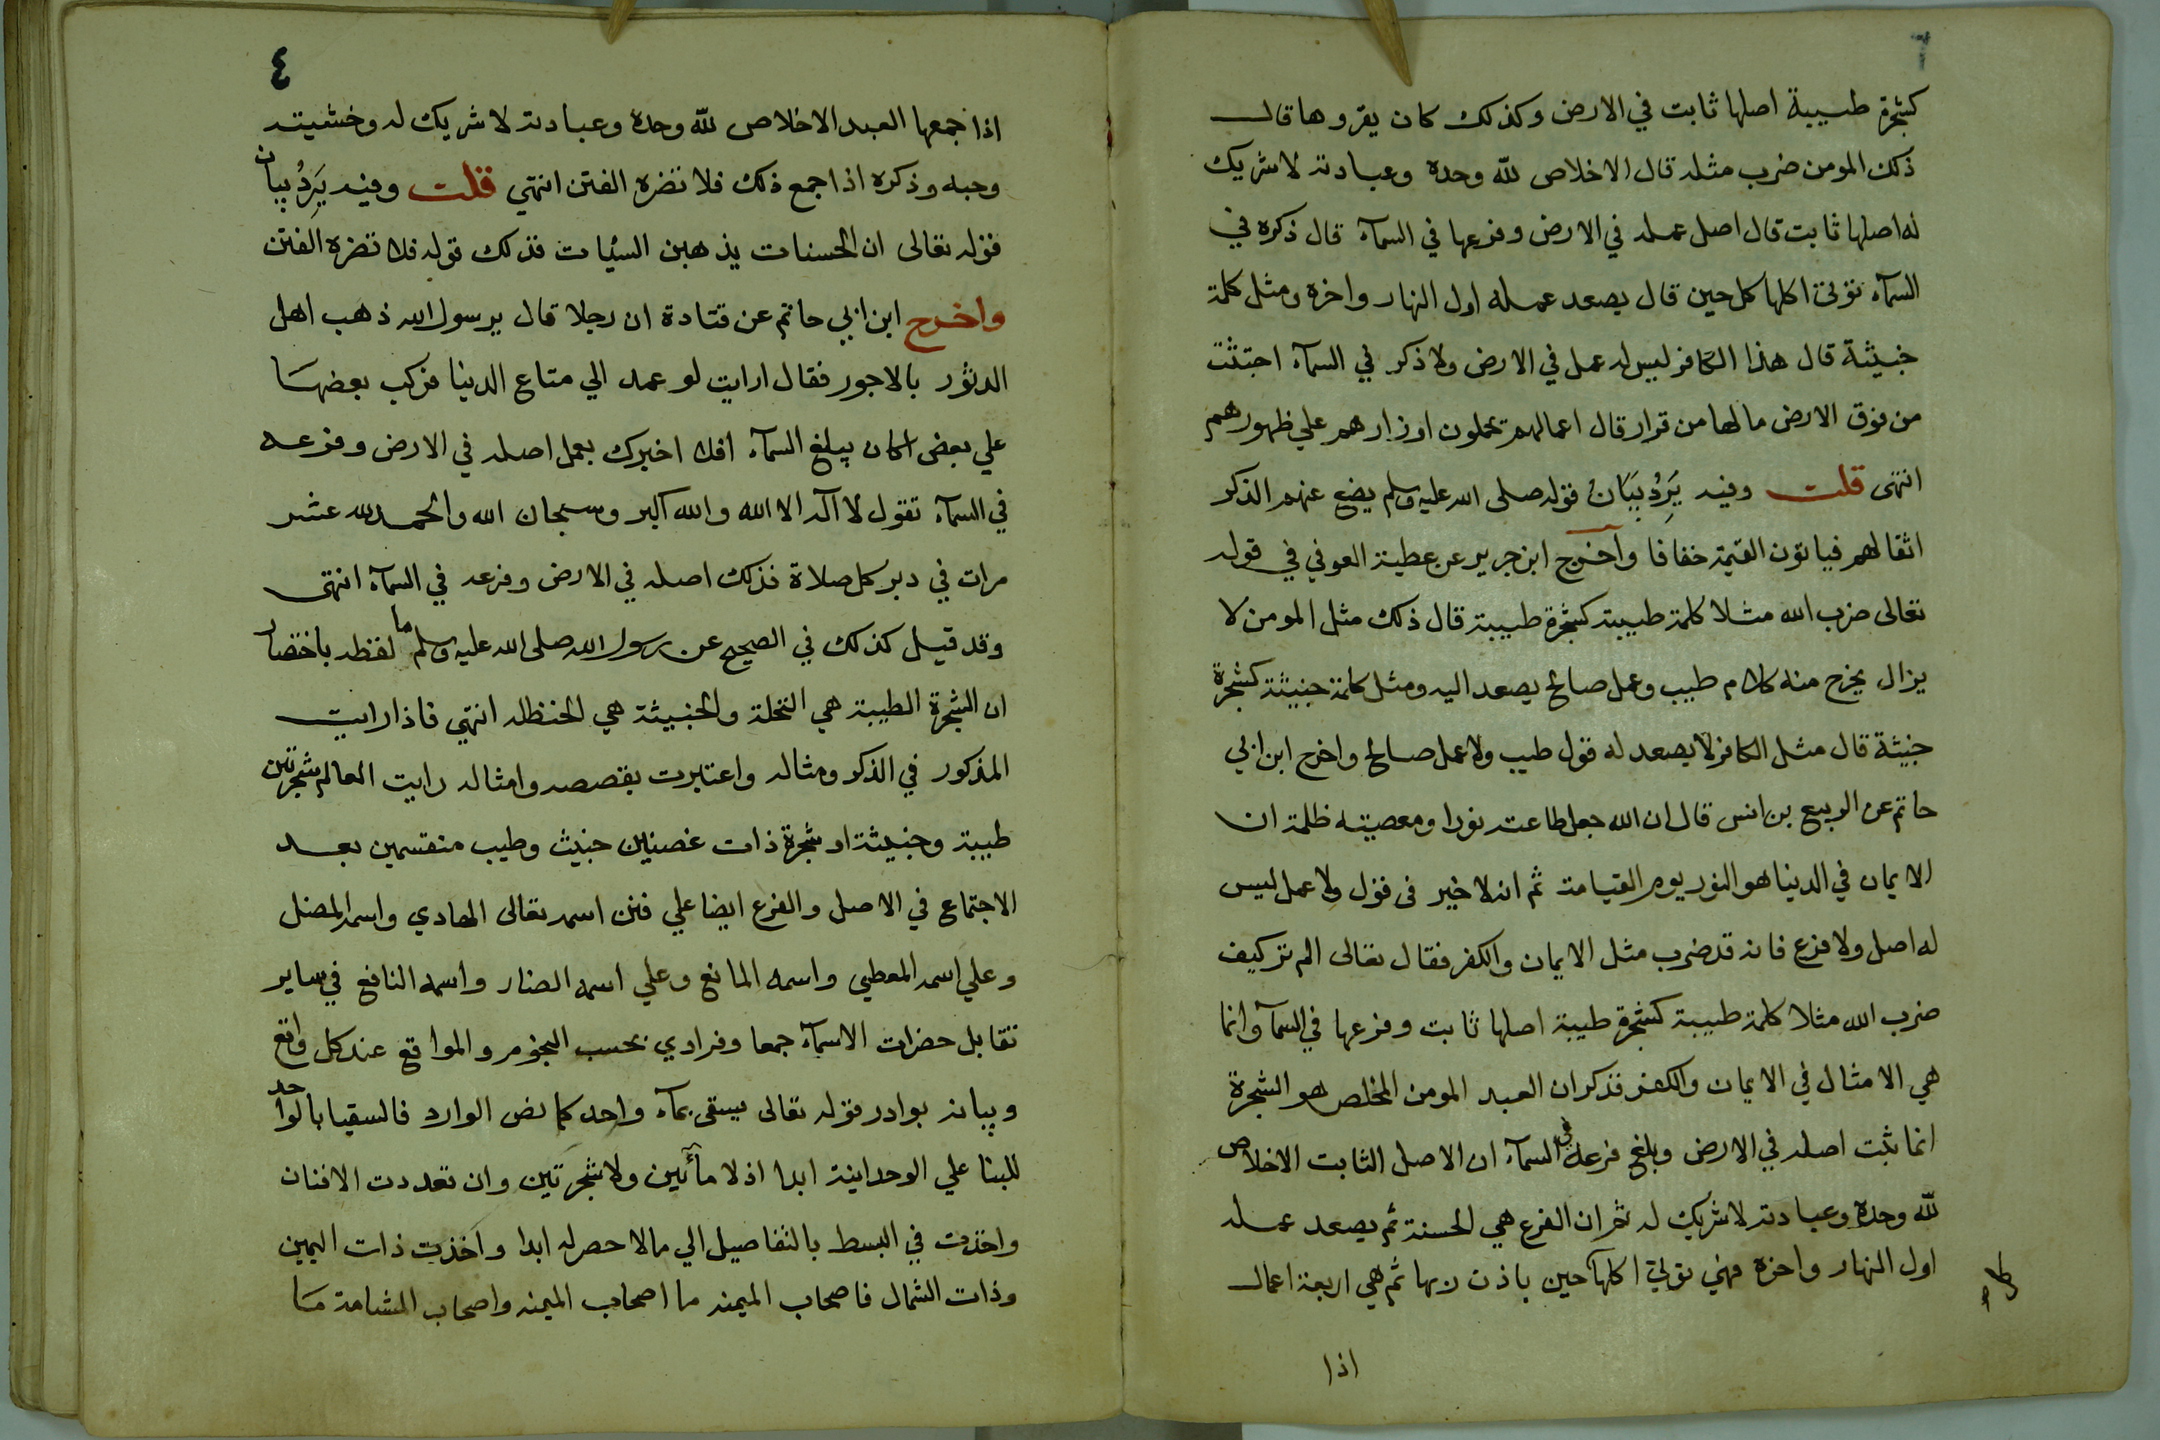 كشجرة طيبة اصلها ثابت في الارض وكذلك كان يقروها قال
ذلك المومن ضرب مثله قال الاخلاص لله وحده وعبادته لا شريك
له اصلها ثابت قال اصل عمله في الارض وفرعها في السمآء قال ذكره في
السمآء توتي اكلها كل حين قال يصعد عمله اول النهار واخره ومثل كلمة
خبيثة قال هذا الكافر ليس له عمل في الارض ولا ذكر في السمآء اجتثت
من فوق الارض مالها من قرار قال اعمالهم يحملون اوزارهم علي ظهورهم
انتهى قلت وفيه يَرِدُ بَيَانُ قوله صلى الله عليه وسلم يضع عنهم الذكر
اثقالهم فياتون القيمة خفافا واخرج ابن جرير عن عطية العوفي في قوله
تعالى ضرب الله مثلا كلمة طيبة كشجرة طيبة قال ذلك مثل المومن لا
يزال يخرج منه كلام طيب وعمل صالح يصعد اليه ومثل كلمة خبيثة كشجرة
خبيثة قال مثل الكافر لا يصعد له قول طيب ولا عمل صالح واخرج ابن ابي
حاتم عن الربيع بن انس قال ان الله جعل طاعته نورا ومعصيته ظلمة ان
الايمان في الدنيا هو النور يوم القيامة ثم انه لا خير في قول ولا عمل ليس
له اصل ولا فرع فانه قد ضرب مثل الايمان والكفر فقال تعالى الم تر كيف
ضرب الله مثلا كلمة طيبة كشجرة طيبة اصلها ثابت وفرعها في السمآء وانما
هي الامثال في الايمان والكفر فذكر ان العبد المومن المخلص هو الشجرة
انما ثبت اصله في الارض وبلغ فرعه في السمآء ان الاصل الثابت الاخلاص
لله وحده وعبادته لا شريك له ثم ان الفرع هي الحسنة ثم يصعد عمله
اول النهار واخره فهي توتي اكلها حين باذن ربها ثم هي اربعة اعمال
اذا
٤
اذا جمعها العبد الاخلاص لله وحده وعبادته لا شريك له وخشيته
وحبه وذكره اذا جمع ذلك فلا تضره الفتن انتهي قلت وفيه يَرِدُ بيان
قوله تعالى ان الحسنات يذهبن السيات فذلك قوله فلا تضره الفتن
واخرج ابن ابي حاتم عن قتادة ان رجلا قال يرسول الله ذهب اهل
الدثور بالاجور فقال ارايت لو عمد الي متاع الدنيا فركب بعضها
علي بعض اكان يبلغ السمآء افلا اخبرك بعمل اصله في الارض وفرعه
في السمآء تقول لا اله الا الله والله اكبر وسبحان الله والحمد لله عشر
مرات في دبر كل صلاة فذلك اصله في الارض وفرعه في السمآء انتهى
وقد قيل كذلك في الصحيح عن رسول الله صلى الله عليه وسلم ما لفظه باختصار
ان الشجرة الطيبة هي النخلة والخبيثة هي الحنظله انتهي فاذا رايت
المذكور في الذكر ومثاله واعتبرت بقصصه وامثاله رايت العالم شجرتين
طيبة وخبيثة او شجرة ذات غصنين خبيث وطيب منقسمين بعد
الاجتماع في الاصل والفرع ايضا علي فنن اسمه تعالى الهادي واسمه المضل
وعلي اسمه المعطي واسمه المانع وعلي اسمه الضار واسمه النافع في ساير
تقابل حضرات الاسمآء جمعا وفرادي بحسب النجوم والمواقع عند كل واقع
وبيانه بوادر قوله تعالى يسقى بمآء واحد كما نص الوارد فالسقيا بالواحد
للبنا علي الوحدانية ابدا اذ لا مآئين ولا شجرتين وان تعددت الافنان
واخذت في البسط بالتفاصيل الي مالا حصر له ابدا واخذت ذات اليمين
وذات الشمال فاصحاب الميمنه ما اصحاب الميمنه واصحاب المشامة ما